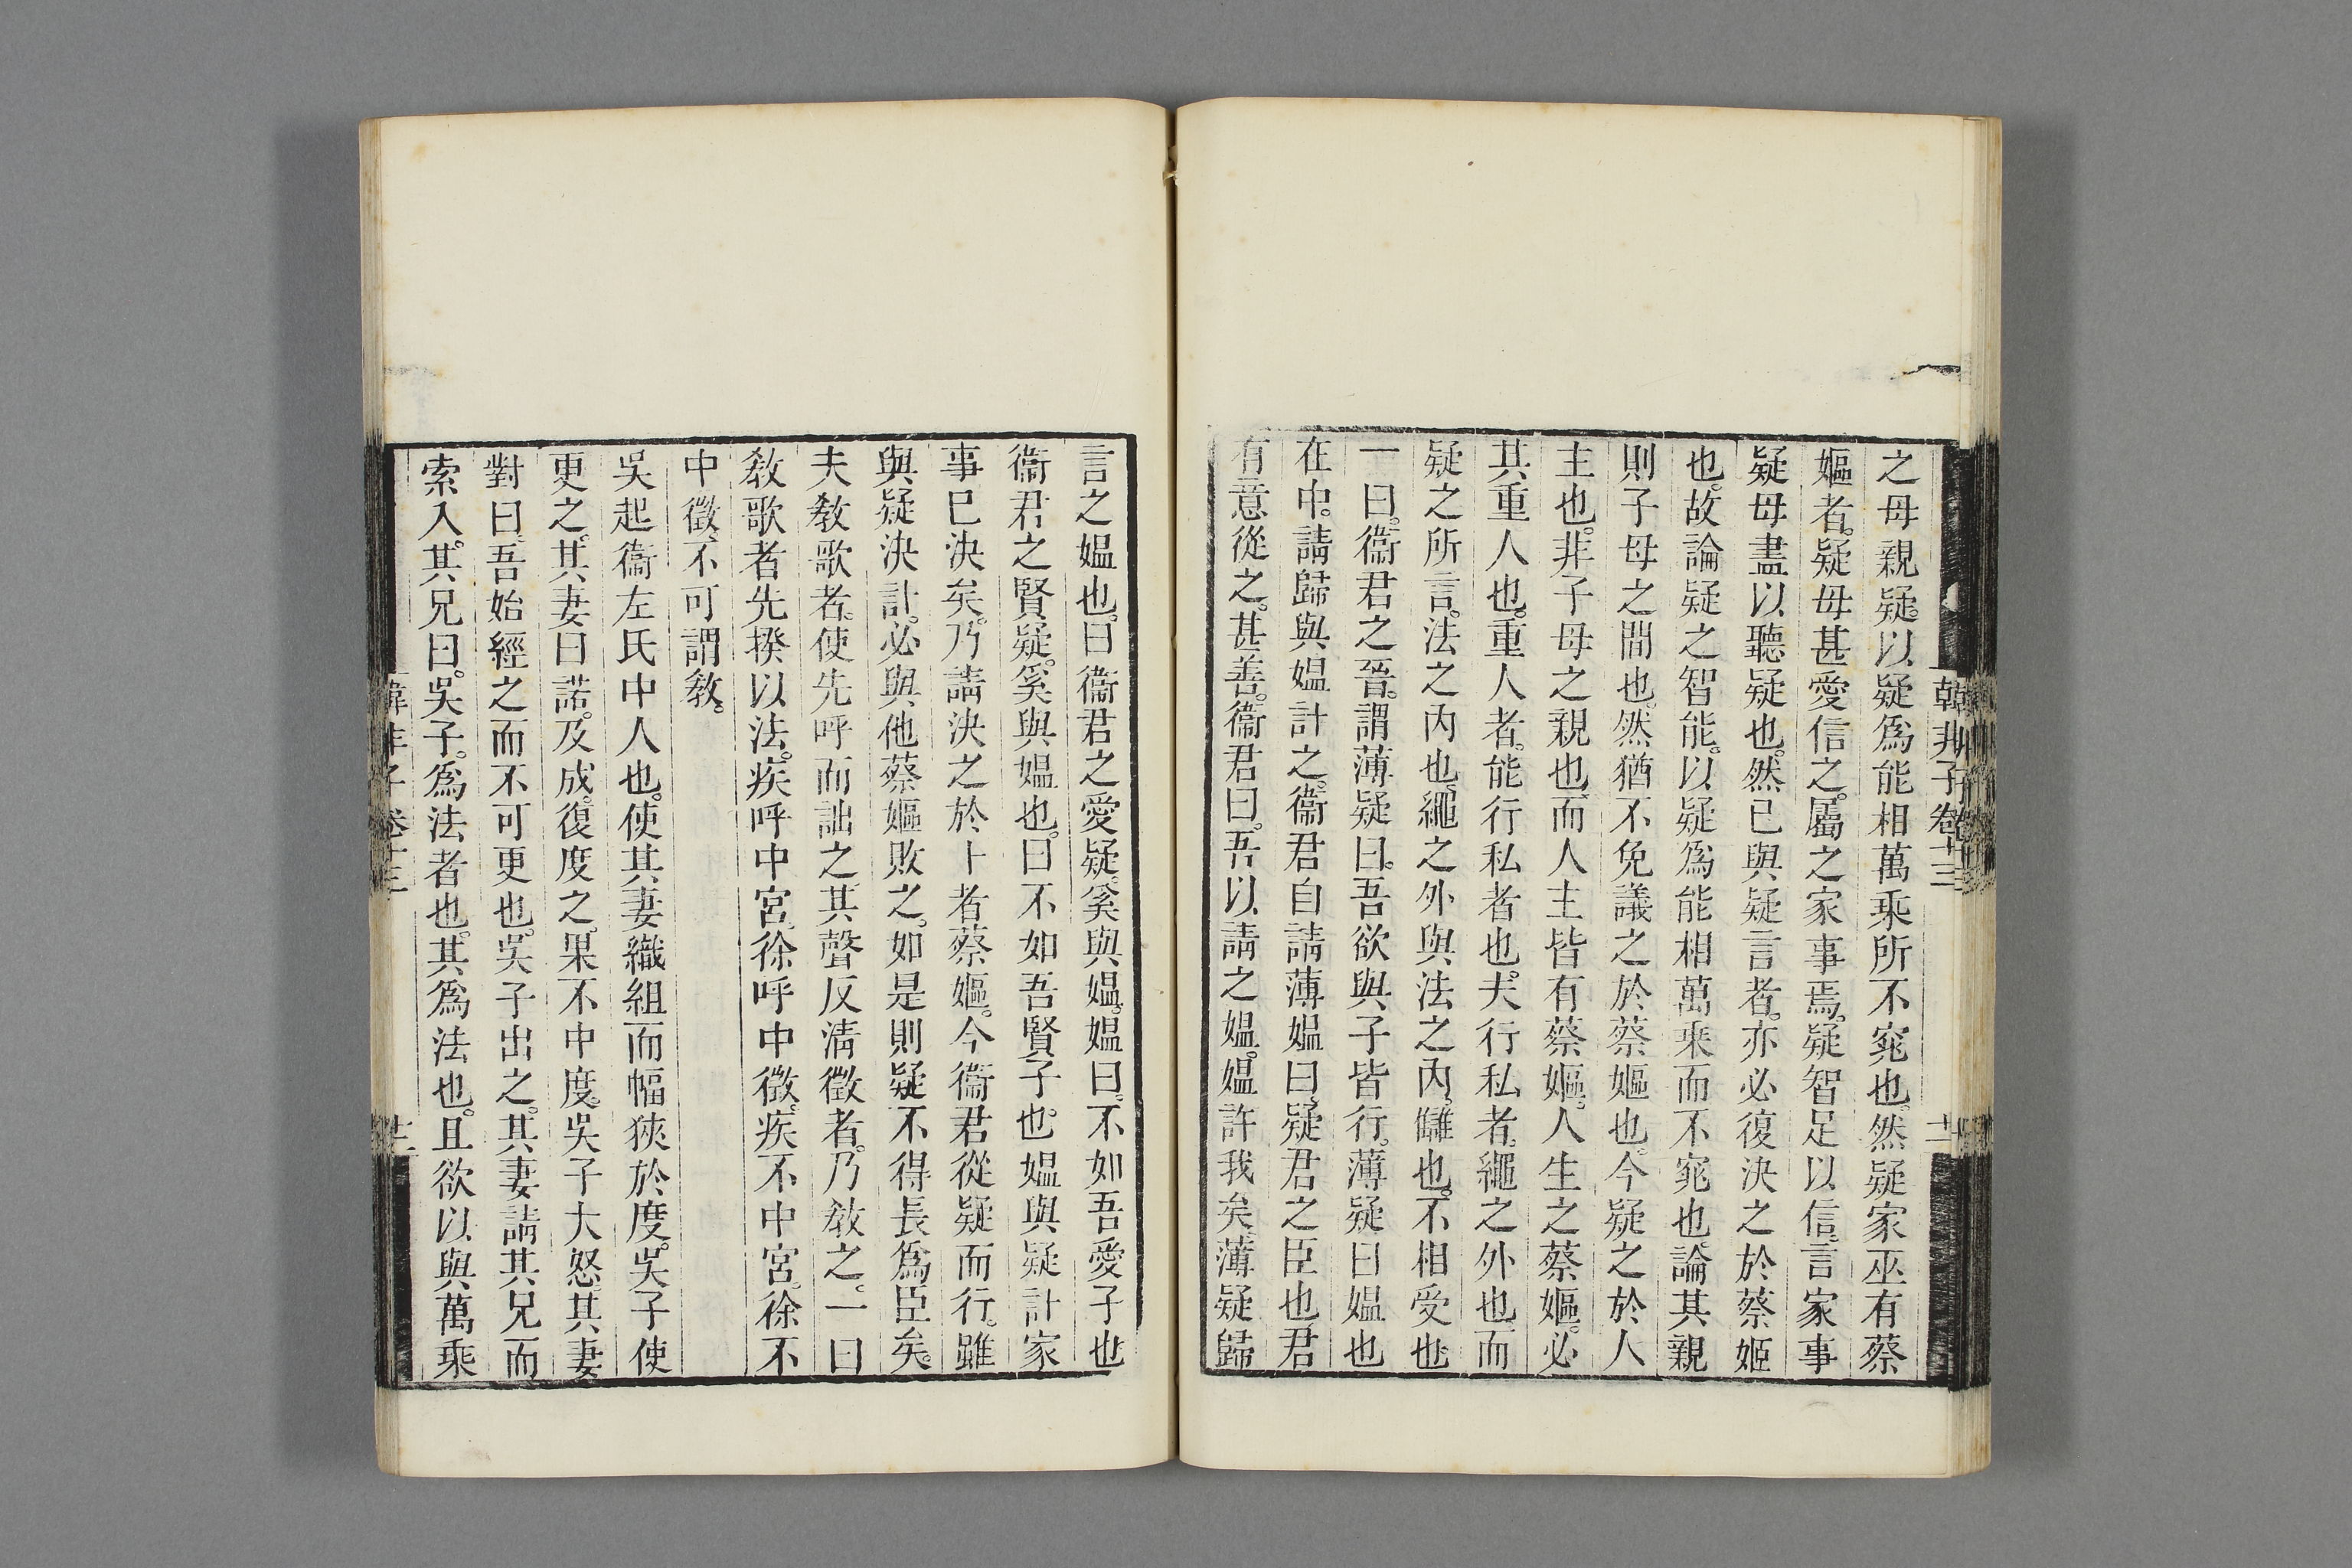 韓非子卷十三
十一
之母親疑。以疑爲能相萬乘所不窕也。然疑家巫有蔡
嫗者。疑母甚愛信之。屬之家事焉。疑智足以信。言家事
疑母盡以聽疑也。然已與疑言者。亦必復決之於蔡姬
也。故論疑之智能。以疑爲能相萬乘而不窕也。論其親
則子母之間也。然猶不免議之於蔡嫗也。今疑之於人
主也。非子母之親也。而人主皆有蔡嫗。人生之蔡嫗。必
其重人也。重人者。能行私者也。夫行私者。繩之外也。而
疑之所言。法之內也。繩之外與法之內。讎也。不相受也
一曰。衞君之晉。謂薄疑曰。吾欲與子皆行。薄疑曰媼也
在中。請歸與媼計之。衞君自請薄媼曰。疑君之臣也。君
有意從之。甚善。衞君曰。吾以請之媼。媼許我矣。薄疑歸
言之媼也。曰衞君之愛疑。奚與媼。媼曰。不如吾愛子也
衞君之賢疑。奚與媼也。曰不如吾賢子也。媼與疑計家
事已決矣。乃請決之於卜者蔡嫗。今衞君從疑而行。雖
與疑決計。必與他蔡嫗敗之。如是則疑不得長爲臣矣。
夫敎歌者。使先呼而詘之。其聲反淸徵者。乃敎之。一曰
敎歌者先揆以法。疾呼中宮。徐呼中徵。疾不中宮。徐不
中徵。不可謂敎。
吳起衞左氏中人也。使其妻織組而幅狹於度。吳子使
更之。其妻曰諾。及成。復度之。果不中度。吳子大怒。其妻
對曰。吾始經之而不可更也。吳子出之。其妻請其兄而
索入。其兄曰。吳子。爲法者也。其爲法也。且欲以與萬乘
韓非子卷十三
十一